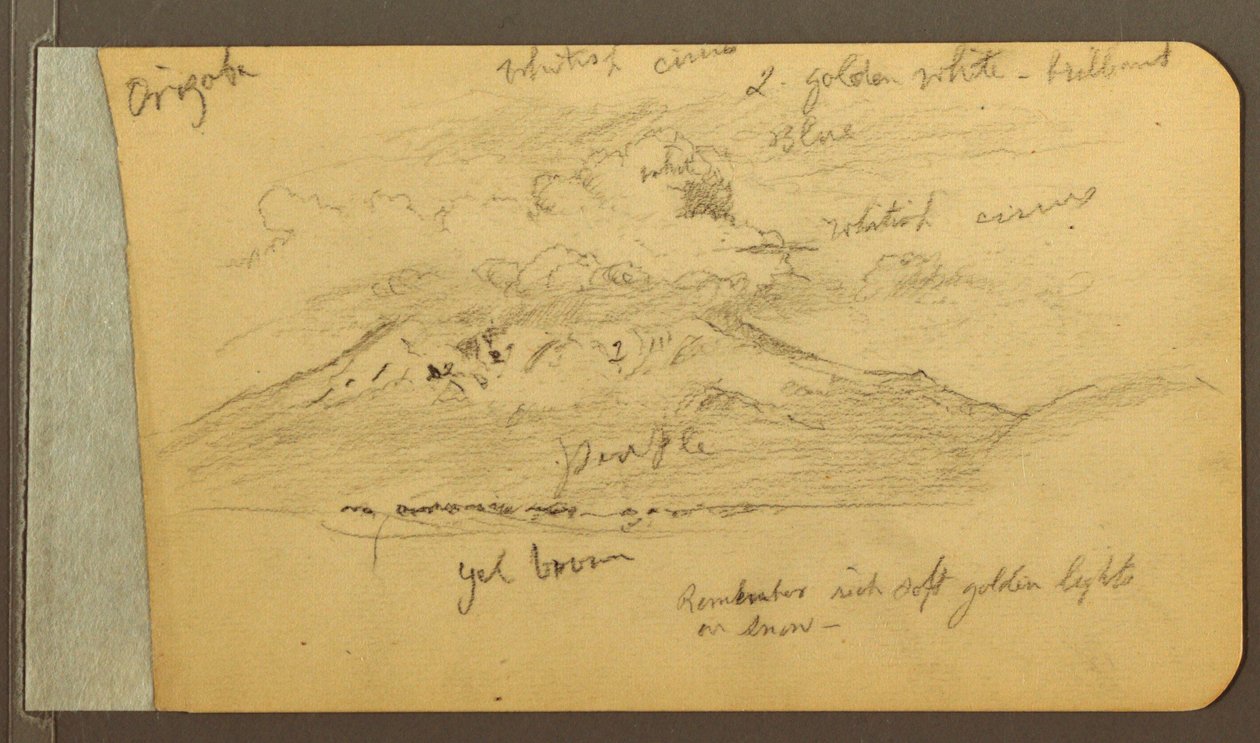 Orizaba
Whitish cirrus
2. golden white - brilliant
Blue
white
whitish cirrus
2
2
2
purple
yel brown
Remember rich soft golden lights
on snow -